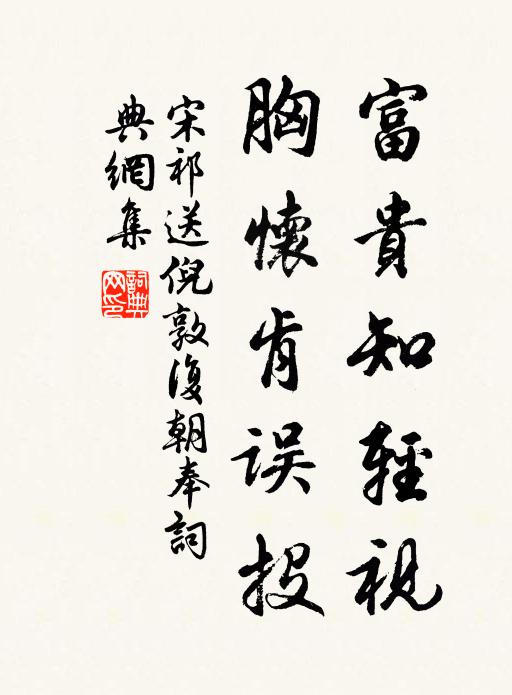 富貴知輕視
胸懷肯误投
宋祁送倪敦復朝奉詞
典網集
詞典网印